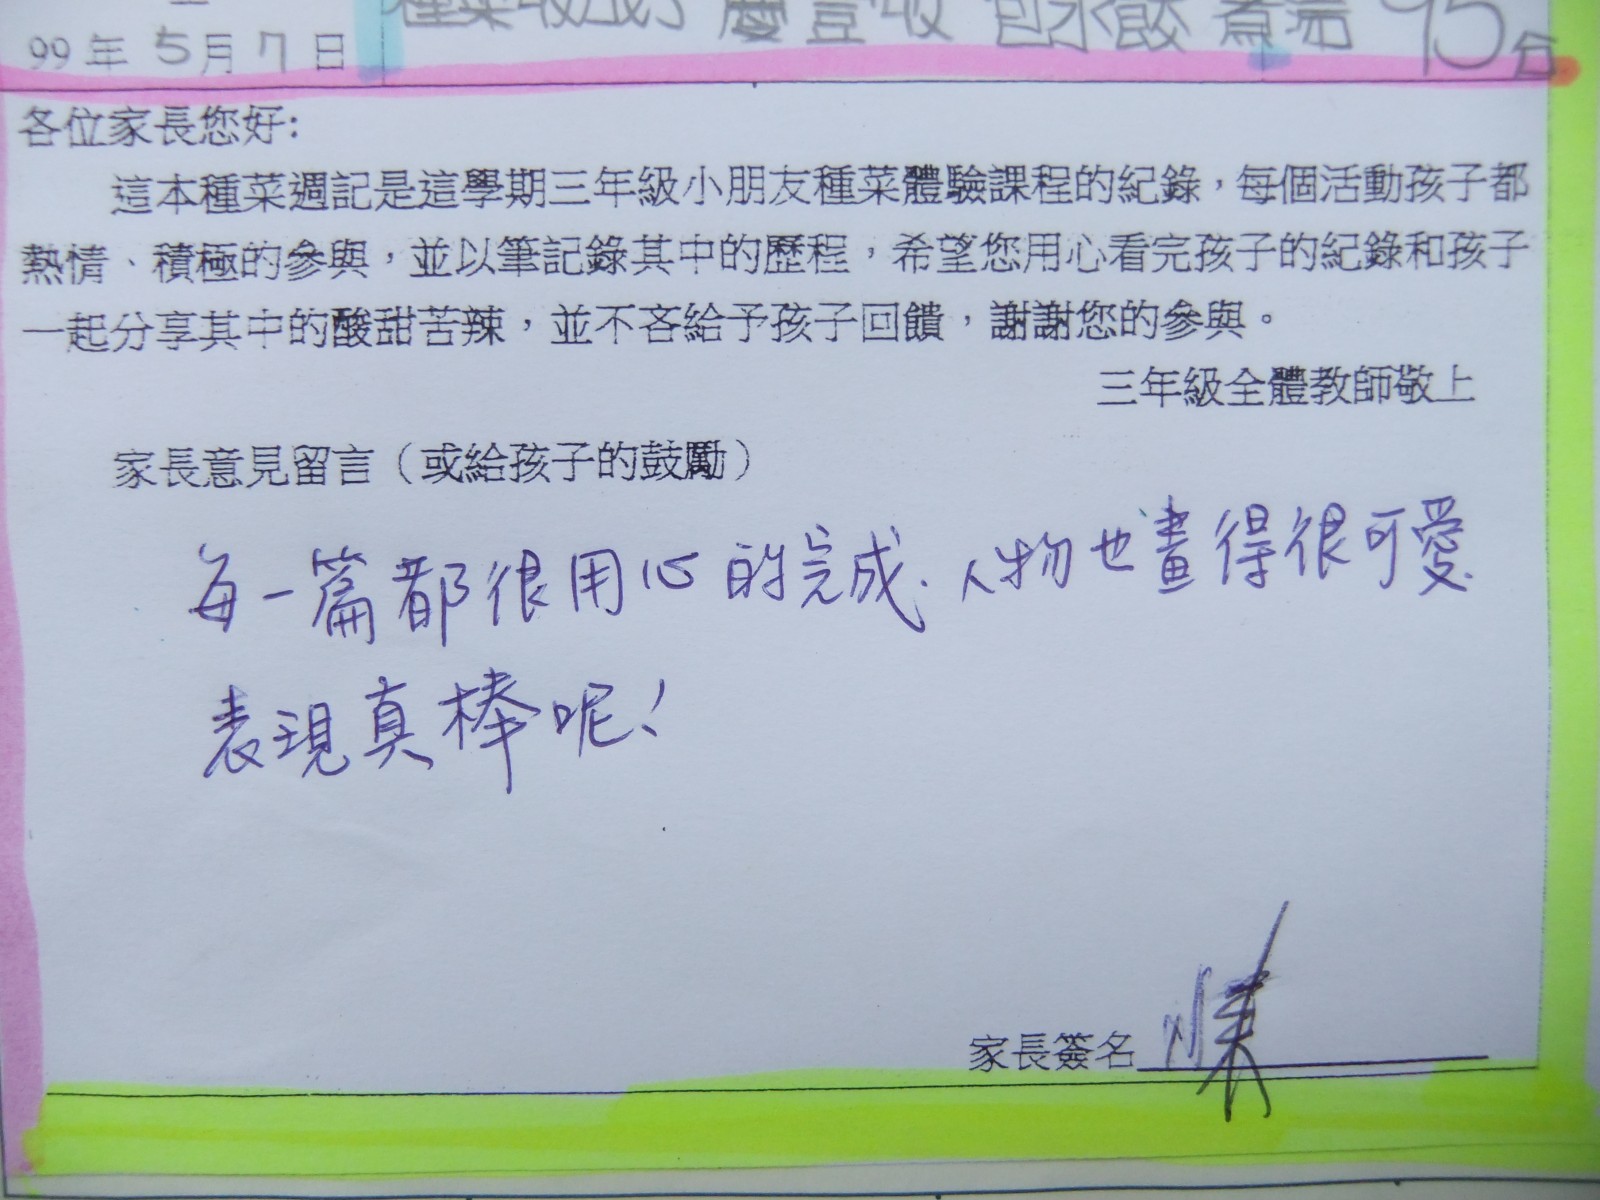 種菜收成了 慶豐收 包水餃 煮湯 95分
99年5月7日
各位家長您好:
這本種菜週記是這學期三年級小朋友種菜體驗課程的紀錄，每個活動孩子都
熱情、積極的參與，並以筆記錄其中的歷程，希望您用心看完孩子的紀錄和孩子
一起分享其中的酸甜苦辣，並不吝給予孩子回饋，謝謝您的參與。
三年級全體教師敬上
家長意見留言（或給孩子的鼓勵）
每一篇都很用心的完成.人物也畫得很可愛.
表現真棒呢!
家長簽名